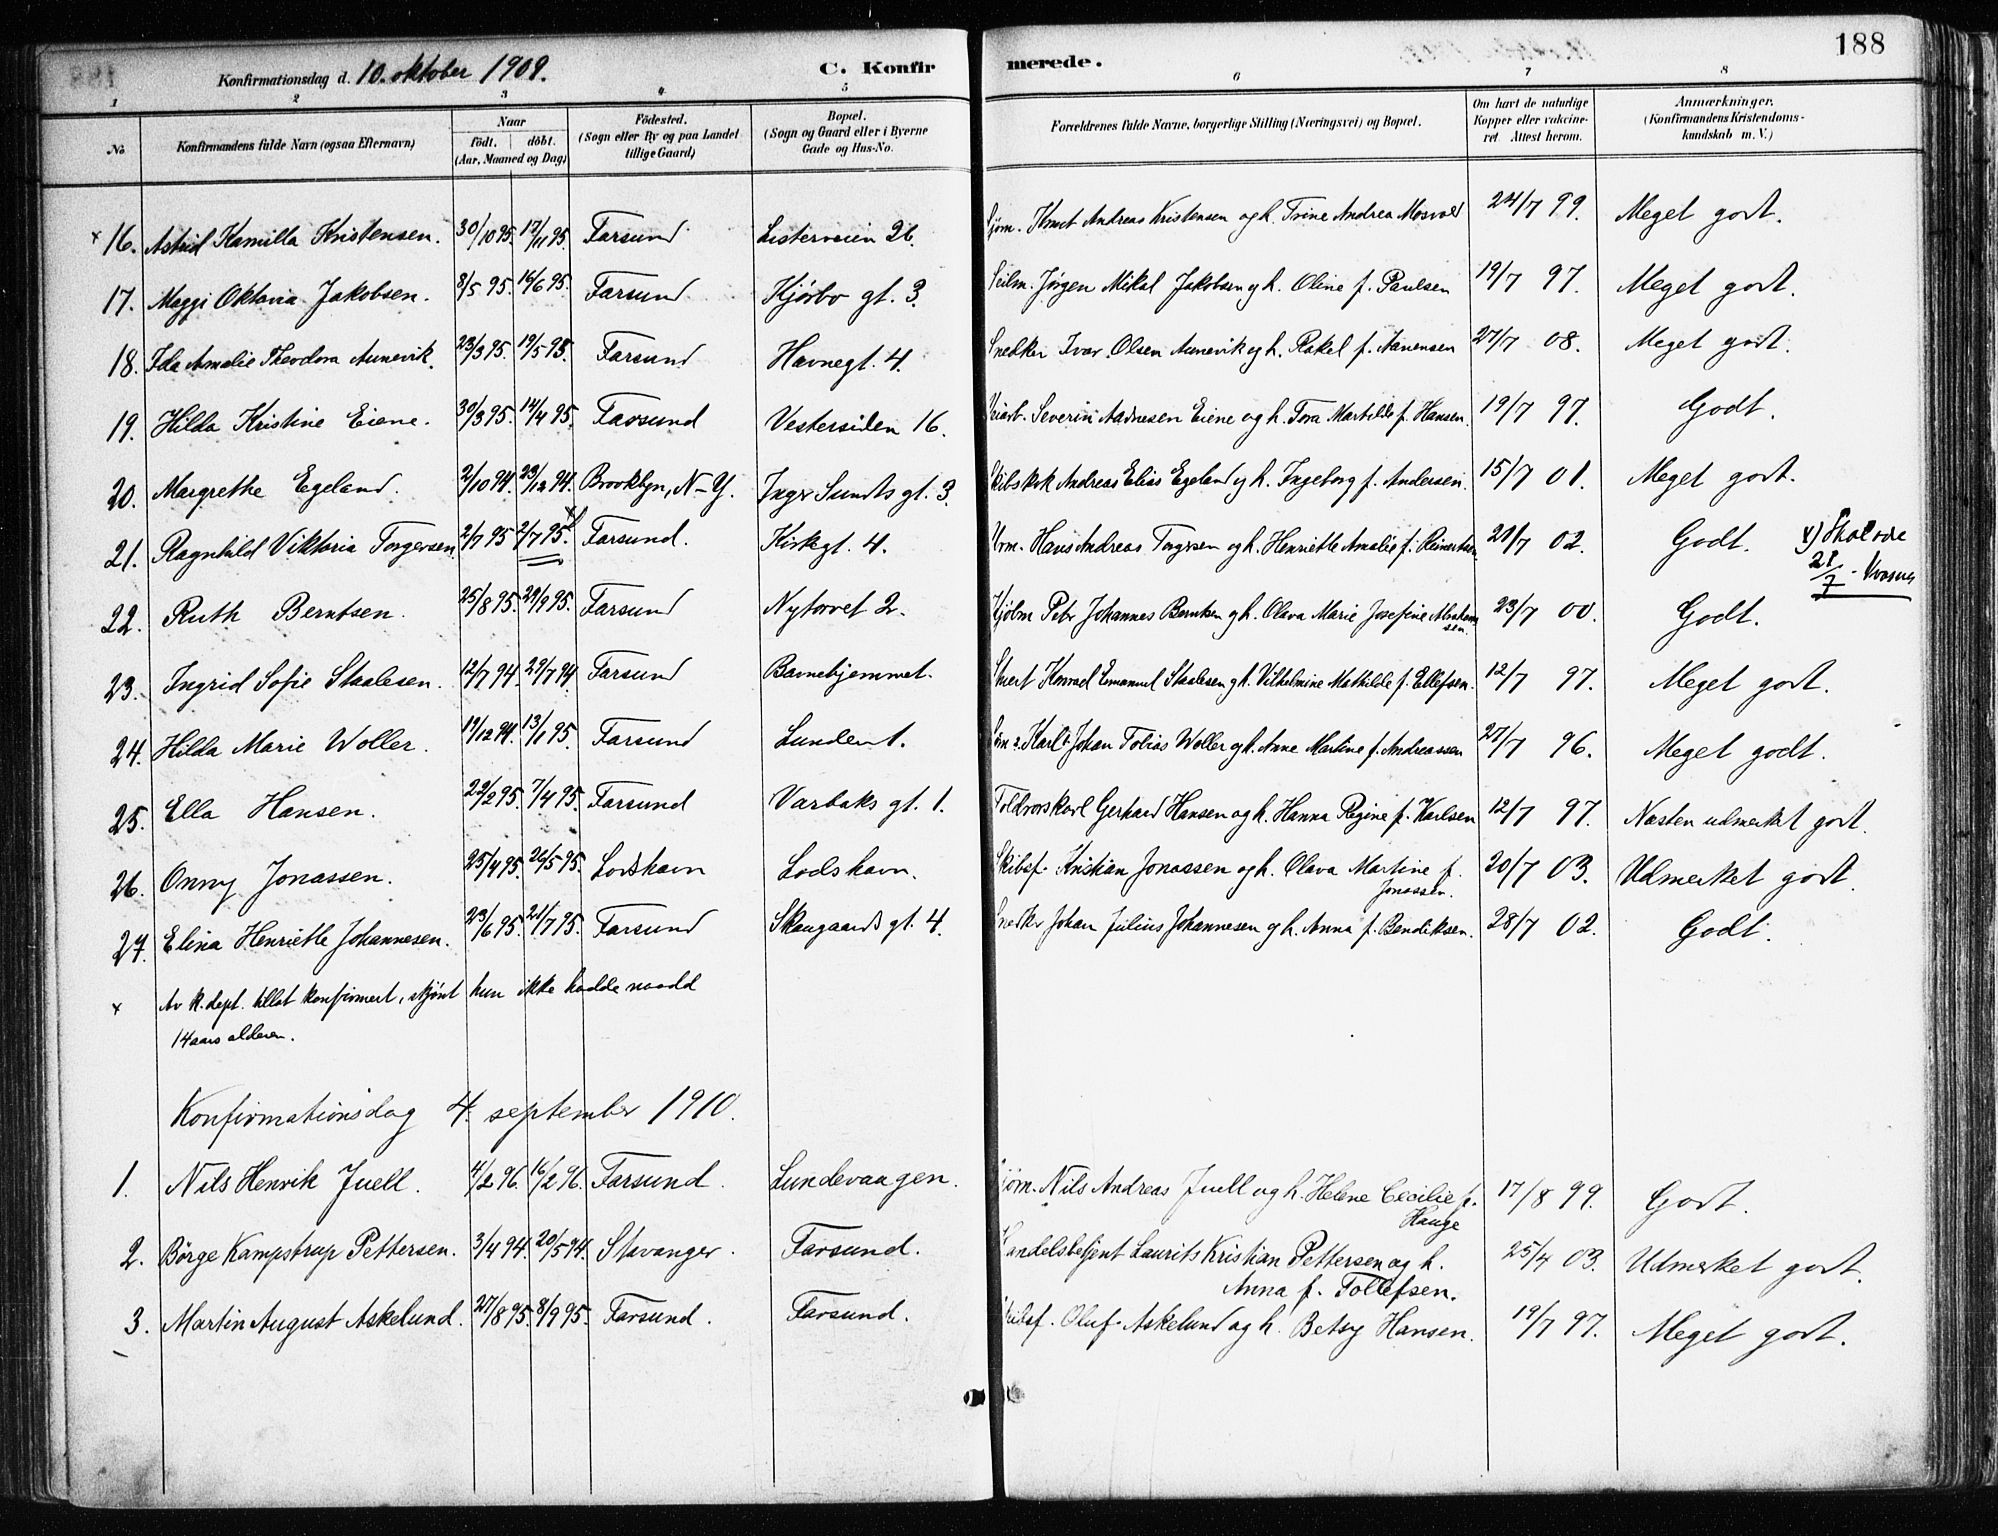 188
Konfirmationsdag d. 10. oktober 1909. C. Konfir merede.
1 2 3 4 5 6 7 8
No Konfirmandens fulde Navn (ogsaa Efternavn) Naar født. døbt. (Aar, Maaned og Dag) Fødested. (Sogn eller By og paa Landet tillige Gaard) Bopæl. (Sogn og Gaard eller i Byerne Gade og Hus-No. Forældrenes fulde Navne, borgerlige Stilling (Næringsvei) og Bopæl. Om havt de naturlige Kopper eller vakcineret. Attest herom. Anmærkninger. (Konfirmandens Kristendomskundskab m. V.)
x 16. Astrid Kamilla Kristensen. 30/10 95. 17/11 95. Farsund Listerveien 26. Sjøm. Knut Andreas Kristensen og h. Trine Andrea Mosvold 24/7 99. Meget godt.
17. Maggi Oktavia Jakobsen. 8/5 95. 16/6 95. Farsund Kjørbo gt. 3. Seilm. Jørgen Mikal Jakobsen og h. Oline f. Paulsen 19/7 97. Meget godt.
18. Ida Amalie Theodora Aunevik. 23/3 95. 19/5 95. Farsund Havnegt. 4. Snedker Ivar Olsen Aunevik og h. Rakel f. Aanensen 27/7 08. Meget godt.
19. Hilda Kristine Eiene. 30/3 95. 14/4 95. Farsund Vestersiden 16. Severin Aadnesen Eiene og h. Tora Mathilde f. Hansen. 19/7 97. Godt.
20. Margrethe Egeland. 2/10 94. 23/12 94. Brooklyn, N-Y. Inger Sundts gt. 3. Andreas Elias Egeland og h. Ingeborg f. Andersen. 15/7 01. Meget godt.
21. Ragnhild Viktoria Torgersen 2/7 95 2/7 95. x) Farsund. Kirkegt. 4. Hans Andreas Torgersen og h. Henriette Amalie f. Reinertsen 21/7 02. Godt. x) Skal være 21/7 -
22. Ruth Berntsen. 25/8 95. 29/9 95. Farsund Nytorvet 2. Peter Johannes Berntsen og h. Olava Marie Josefine Abrahamsen. 23/7 00. Godt.
23. Ingrid Sofie Staalesen. 12/7 94. 29/7 94. Farsund Barnehjemmet. Konrad Emanuel Staalesen og h. Vilhelmine Mathilde f. Ellefsen. 12/7 97. Meget godt.
24. Hilda Marie Woller. 19/12 94. 13/1 95. Farsund Lunden 1. Karl Johan Tobias Woller og h. Anne Martine f. Andreassen 27/7 96. Meget godt.
25. Ella Hansen. 22/2 95. 7/4 95. Farsund Varbaks gt. 1. Toldvorskarl Gerhard Hansen og h. Hanna Regine f. Karlsen 12/7 97. Næsten udmerket godt.
26. Onny Jonassen. 25/4 95. 26/5 95. Lodshavn Lodshavn. Skibsf. Kristian Jonassen og h. Olava Martine f. Jonassen. 20/7 03. Udmerket godt.
27. Elina Henriette Johannesen. 23/6 95. 21/7 95. Farsund Skaugaards gt. 4. Snedker Johan Julius Johannesen og h. Anna f. Bendiksen. 28/7 02. Godt.
x Av k. dept. tillat konfirmert, skjønt hun ikke hadde naadd
14 aars alderen.
Konfirmationsdag 4. september 1910.
1. Nils Henrik Juell. 4/2 96. 16/2 96. Farsund. Lundevaagen. Sjøm. Nils Andreas Juell og h. Helene Cecilie f. Hauge 17/8 99. Godt.
2. Børge Kampstrup Pettersen. 3/4 94. 20/5 94. Stavanger. Farsund. Handelsbetjent Laurits Kristian Pettersen og h. Anna f. Tollefsen. 25/4 03. Udmerket godt.
3. Martin August Askelund. 27/8 95. 8/9 95. Farsund. Farsund. Skibsf. Oluf Askelund og h. Betsy Hansen. 19/7 97. Meget godt.